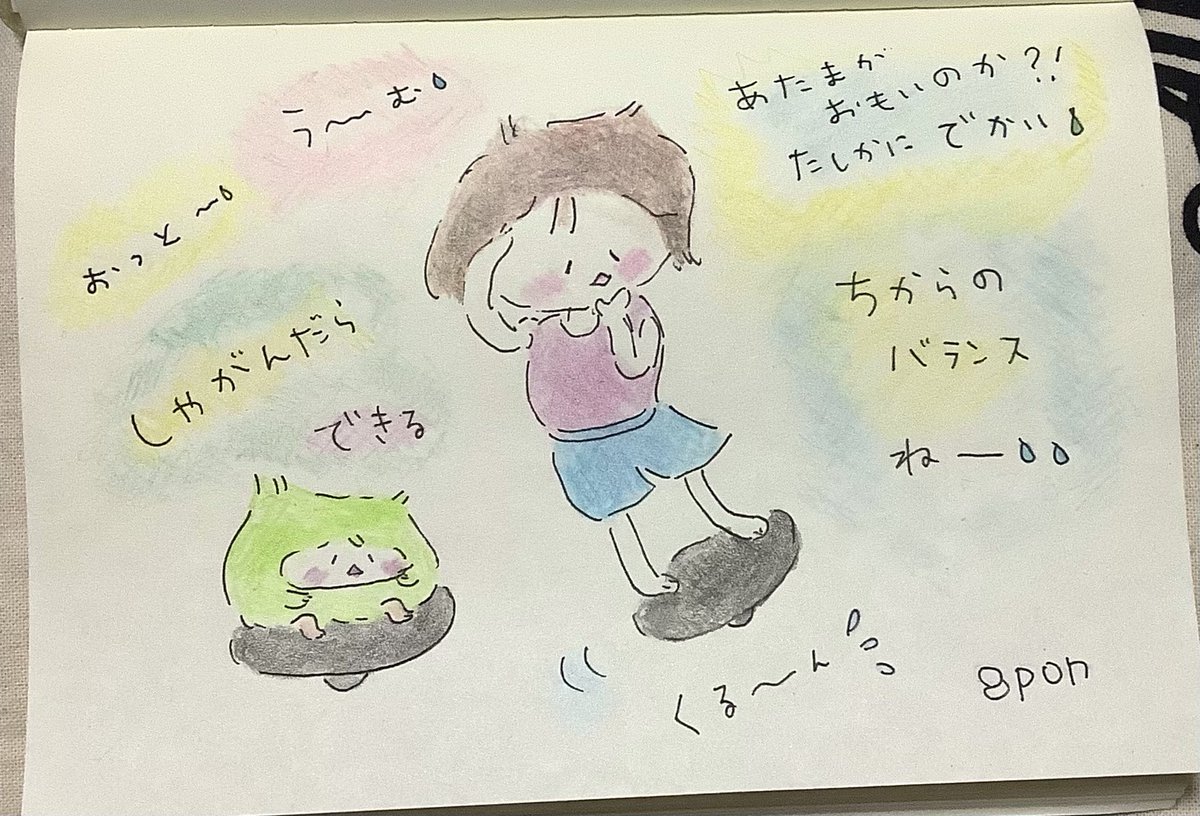 う〜〜む
おっと〜
しゃがんだら
できる
あたまが
おもいのか?!
たしかに でかい
ちからの
バランス
ねー
くる〜〜ん
8pon